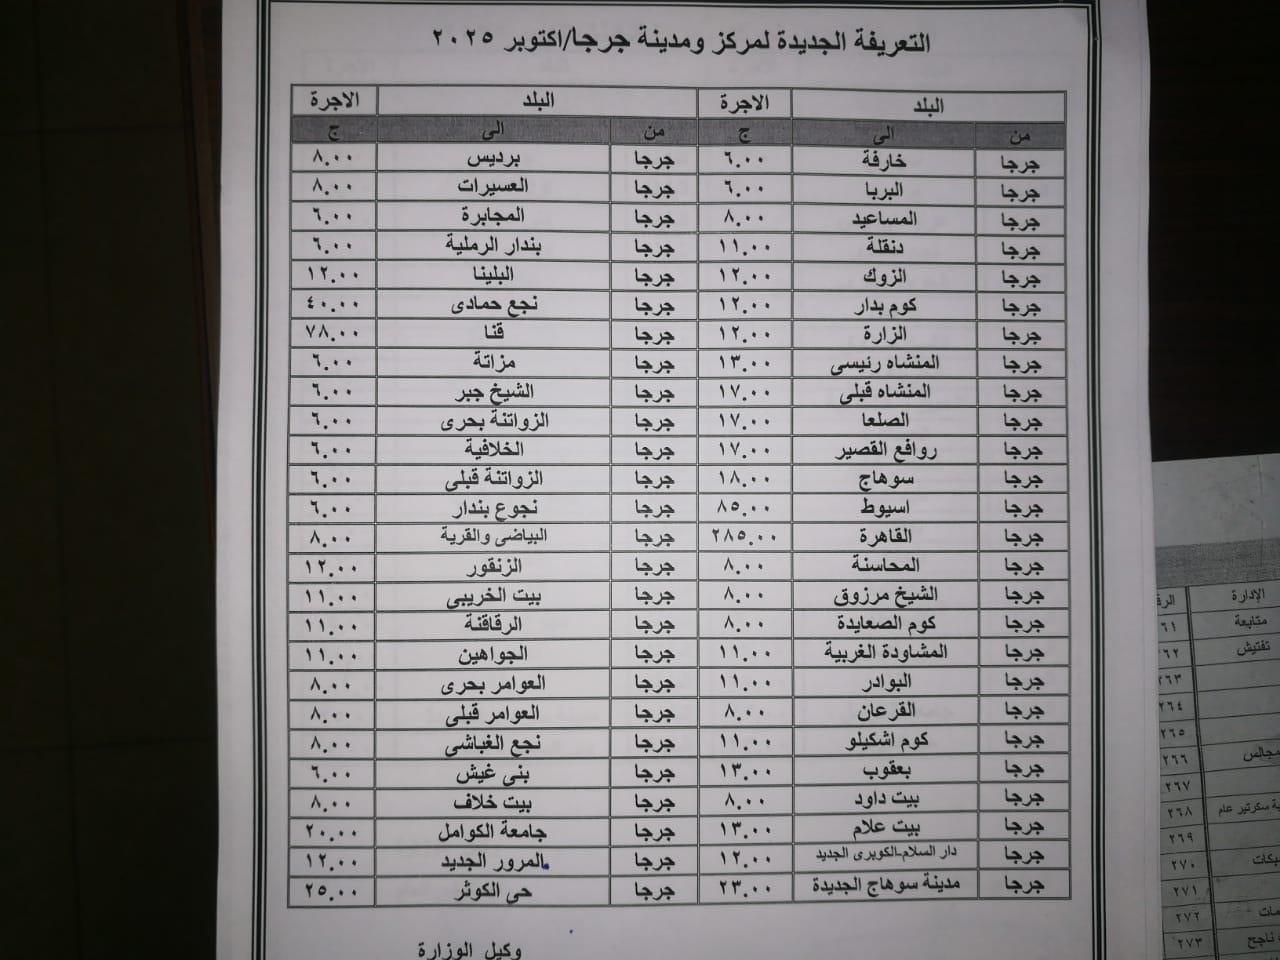 التعريفة الجديدة لمركز ومدينة جرجا/اكتوبر ٢٠٢٥
البلد الاجرة البلد الاجرة
من الى ج من الى ج
جرجا خارفة ٦.٠٠ جرجا برديس ٨.٠٠
جرجا البربا ٦.٠٠ جرجا العسيرات ٨.٠٠
جرجا المساعيد ٨.٠٠ جرجا المجابرة ٦.٠٠
جرجا دنقلة ١١.٠٠ جرجا بندار الرملية ٦.٠٠
جرجا الزوك ١٢.٠٠ جرجا البلينا ١٢.٠٠
جرجا كوم بدار ١٢.٠٠ جرجا نجع حمادى ٤٠.٠٠
جرجا الزارة ١٢.٠٠ جرجا قنا ٧٨.٠٠
جرجا المنشاه رئيسى ١٣.٠٠ جرجا مزاتة ٦.٠٠
جرجا المنشاه قبلى ١٧.٠٠ جرجا الشيخ جبر ٦.٠٠
جرجا الصلعا ١٧.٠٠ جرجا الزواتنة بحرى ٦.٠٠
جرجا روافع القصير ١٧.٠٠ جرجا الخلافية ٦.٠٠
جرجا سوهاج ١٨.٠٠ جرجا الزواتنة قبلى ٦.٠٠
جرجا اسيوط ٨٥.٠٠ جرجا نجوع بندار ٦.٠٠
جرجا القاهرة ٢٨٥.٠٠ جرجا البياضى والقرية ٨.٠٠
جرجا المحاسنة ٨.٠٠ جرجا الزنقور ١٢.٠٠
جرجا الشيخ مرزوق ٨.٠٠ جرجا بيت الخريبى ١١.٠٠
جرجا كوم الصعايدة ٨.٠٠ جرجا الرقاقنة ١١.٠٠
جرجا المشاودة الغربية ١١.٠٠ جرجا الجواهين ١١.٠٠
جرجا البوادر ١١.٠٠ جرجا العوامر بحرى ٨.٠٠
جرجا القرعان ٨.٠٠ جرجا العوامر قبلى ٨.٠٠
جرجا كوم اشكيلو ١١.٠٠ جرجا نجع الغباشى ٨.٠٠
جرجا بعقوب ١٣.٠٠ جرجا بنى غيش ٦.٠٠
جرجا بيت داود ٨.٠٠ جرجا بيت خلاف ٨.٠٠
جرجا بيت علام ١٣.٠٠ جرجا جامعة الكوامل ٢٠.٠٠
جرجا دار السلام-الكوبرى الجديد ١٢.٠٠ جرجا المرور الجديد ١٢.٠٠
جرجا مدينة سوهاج الجديدة ٢٣.٠٠ جرجا حى الكوثر ٢٥.٠٠
وكيل الوزارة
الإدارة
متابعة ٢٦١
تفتيش ٢٦٢
٢٦٣
٢٦٤
٢٦٥
٢٦٦
٢٦٧
سكرتير عام ٢٦٨
٢٦٩
٢٧٠
٢٧١
٢٧٢
٢٧٣